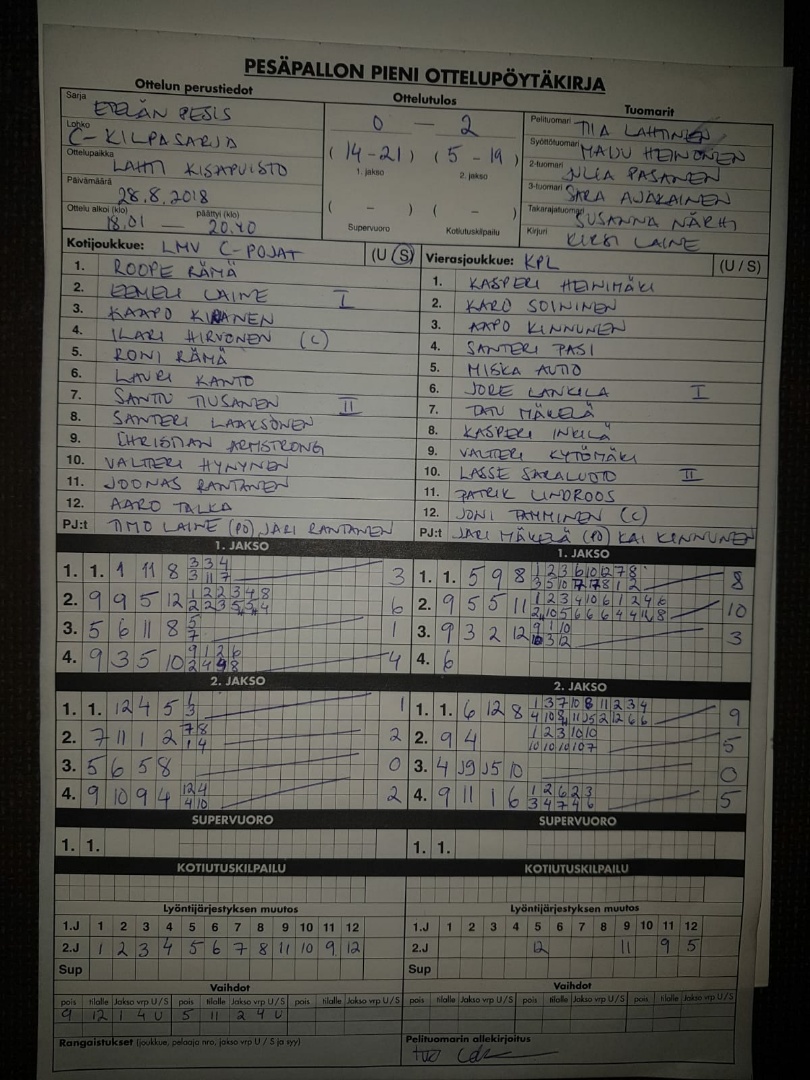 PESÄPALLON PIENI OTTELUPÖYTÄKIRJA
Ottelun perustiedot
Sarja ETELÄN PESIS
Lohko C-KILPASARJA
Ottelupaikka LAHTI KISAPUISTO
Päivämäärä 28.8.2018
Ottelu alkoi (klo) 18.01 — päättyi (klo) 20.40
Ottelutulos
0 — 2
(14-21) (5-19)
1. jakso 2. jakso
( - ) ( - )
Supervuoro Kotiutuskilpailu
Tuomarit
Pelituomari TIIA LAHTINEN
Syöttötuomari MAIJU HEINONEN
2-tuomari JULIA PASANEN
3-tuomari SARA
Takarajatuomari SUSANNA NÄRHI
Kirjuri KIRSI LAINE
Kotijoukkue: LMV C-POJAT (U/S)
1. ROOPE RÄMÄ
2. EEMELI LAINE I
3. KAAPO
4. ILARI HIRVONEN (C)
5. RONI RÄMÄ
6. LAURI KANTO
7. SANTTU TIUSANEN II
8. SANTERI LAAKSONEN
9. CHRISTIAN ARMSTRONG
10. VALTTERI HYNYNEN
11. JOONAS RANTANEN
12. AARO TALKA
PJ:t TIMO LAINE (PO) JARI RANTANEN
Vierasjoukkue: KPL (U/S)
1. KASPERI HEINIMÄKI
2. KARO SOININEN
3. AAPO KINNUNEN
4. SANTERI PASI
5. MISKA AUTIO
6. JORE LANKILA I
7. TATU MÄKELÄ
8. KASPERI INKILÄ
9. VALTTERI KYTÖMÄKI
10. LASSE SARALUOTO II
11. PATRIK LINDROOS
12. JONI TAMMINEN (C)
PJ:t JARI MÄKELÄ (PO) KAI KINNUNEN
1. JAKSO
1. 1. 1 11 8 3 3 4 3
3 11 7
2. 9 9 5 12 6
3. 5 6 11 8 5 1
7
4. 9 3 5 10 4
1. JAKSO
1. 1. 5 9 8 8
2. 9 5 5 11 10
3. 9 3 2 12 9 1 10 3
10 3 12
4. 6
2. JAKSO
1. 1. 12 4 5 1 1
3
2. 7 11 1 2 7 8 2
1 4
3. 5 6 5 8 0
4. 9 10 9 4 12 4 2
4 10
2. JAKSO
1. 1. 6 12 8 1 3 7 10 8 11 2 3 4 9
2. 9 4 1 2 3 10 10 5
10 10 10 10 7
3. 4 10 0
4. 9 11 1 6 1 2 6 2 3 5
3 4 7 4 6
SUPERVUORO
1. 1.
SUPERVUORO
1. 1.
KOTIUTUSKILPAILU
KOTIUTUSKILPAILU
Lyöntijärjestyksen muutos
1.J 1 2 3 4 5 6 7 8 9 10 11 12
2.J 1 2 3 4 5 6 7 8 11 10 9 12
Sup
Lyöntijärjestyksen muutos
1.J 1 2 3 4 5 6 7 8 9 10 11 12
2.J 12 11 9 5
Sup
Vaihdot
pois tilalle Jakso vrp U/S pois tilalle Jakso vrp U/S pois tilalle Jakso vrp U/S
9 12 1 4 U 5 11 2 4 U
Vaihdot
pois tilalle Jakso vrp U/S pois tilalle Jakso vrp U/S pois tilalle Jakso vrp U/S
Rangaistukset (joukkue, pelaaja nro, jakso vrp U / S ja syy)
Pelituomarin allekirjoitus